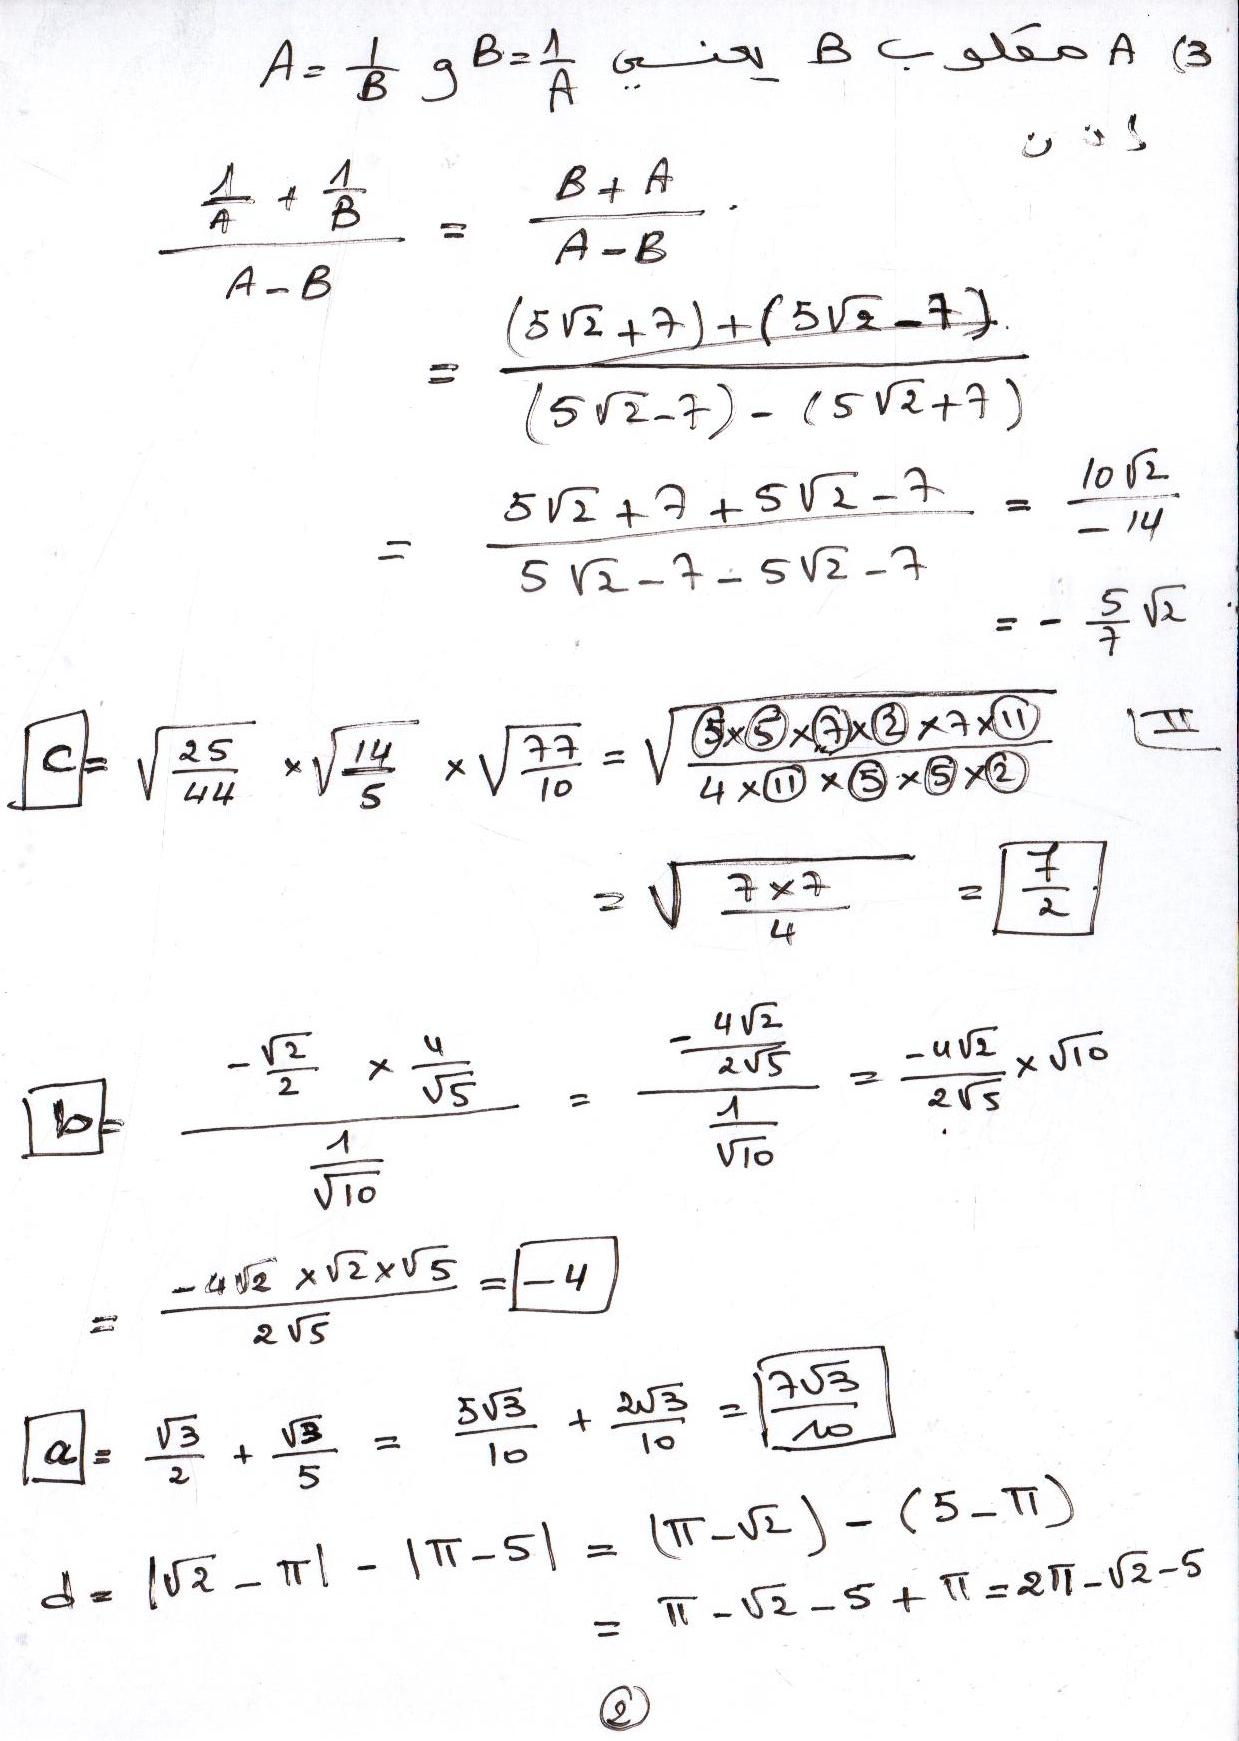 3) A مقلوب B يعني B = 1/A و A = 1/B
إذن
(1/A + 1/B)/(A - B) = (B + A)/(A - B) .
= ((5√2 + 7) + (5√2 - 7))/((5√2 - 7) - (5√2 + 7))
= (5√2 + 7 + 5√2 - 7)/(5√2 - 7 - 5√2 - 7) = 10√2/-14
= - 5/7 √2
II
C = √(25/44) × √(14/5) × √(77/10) = √((5×5×7×2×7×11)/(4×11×5×5×2))
= √((7×7)/4) = 7/2
b = (-√2/2 × 4/√5)/(1/√10) = (-4√2/2√5)/(1/√10) = -4√2/2√5 × √10
= (-4√2 × √2 × √5)/(2√5) = -4
a = √3/2 + √3/5 = 5√3/10 + 2√3/10 = 7√3/10
d = |√2 - π| - |π - 5| = (π - √2) - (5 - π)
= π - √2 - 5 + π = 2π - √2 - 5
2